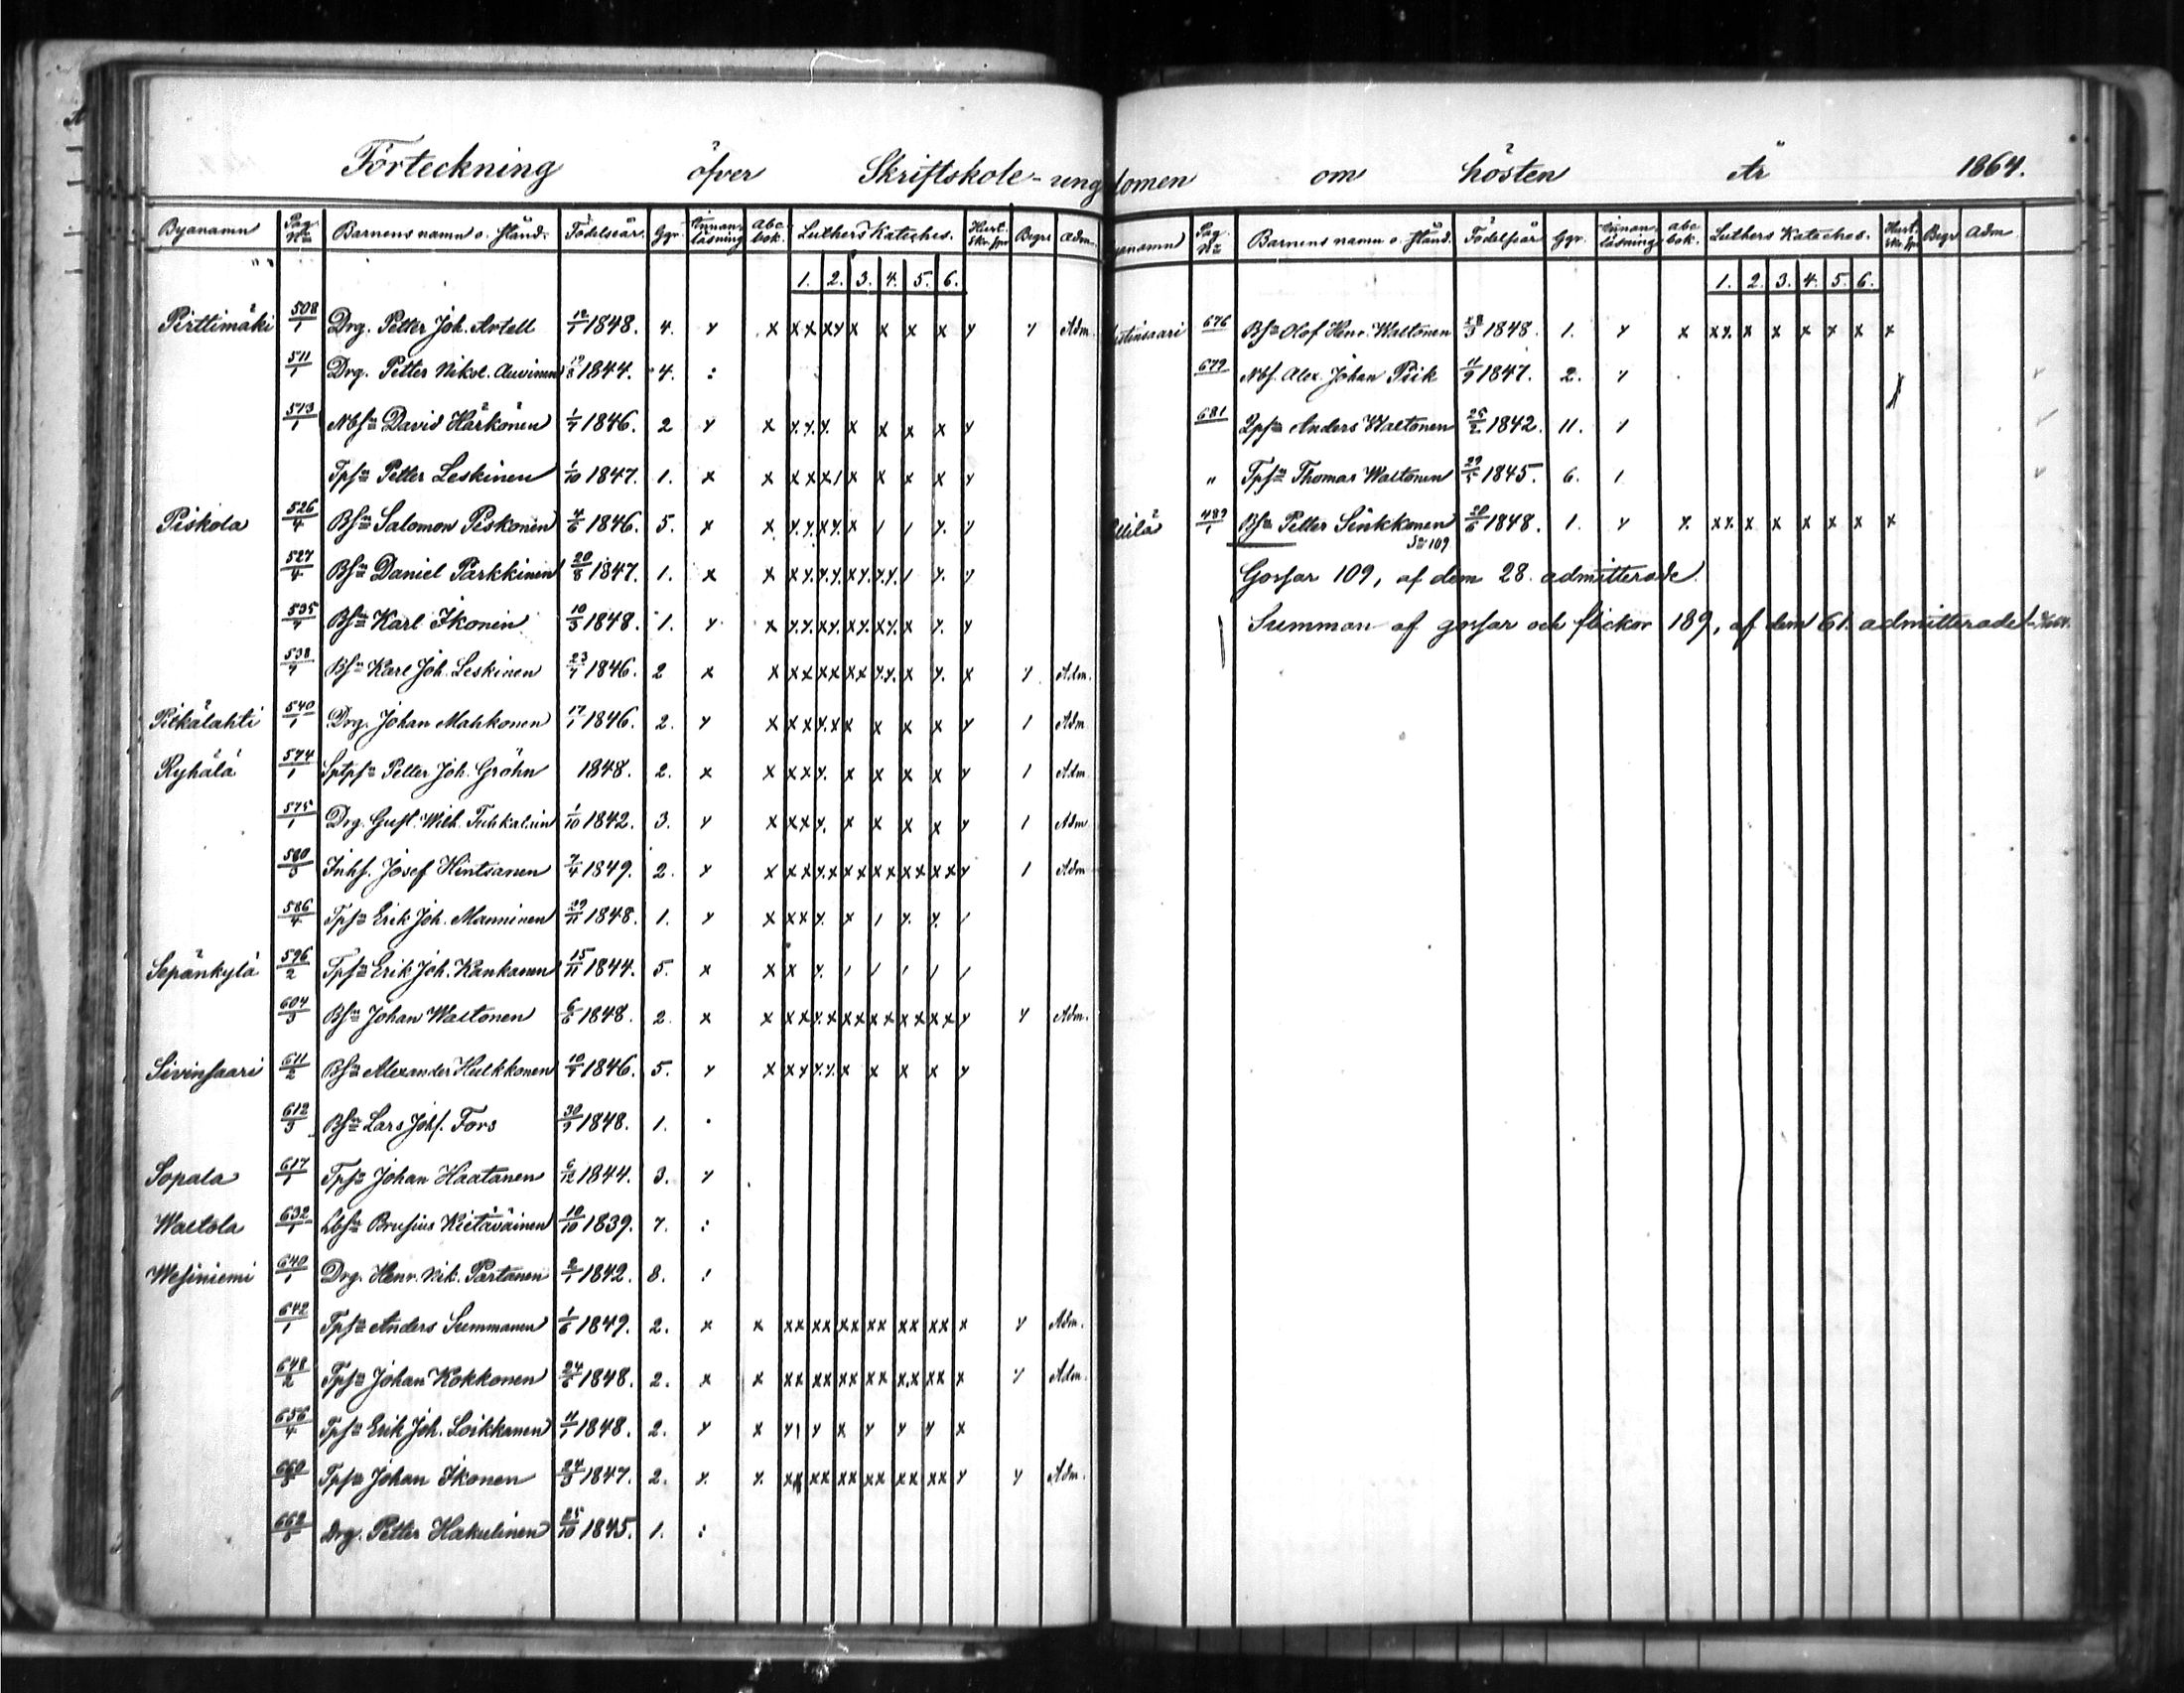 Förteckning öfver Skriftskole-ungdomen om hösten År 1864.
Byanamn Pag. No Barnens namn o. stånd. Födelseår Ggr. Innanläsning Abc bok. Luthers Kateches. Begr Adm.
1. 2. 3. 4. 5. 6.
Pirttimäki 508/1 Drg. Petter Joh. Artell 1848. 4. x x x x x y x x x x x y y Adm.
511/1 Drg. Petter Nikol. Auvinen 1844. 4. :
513/1 Nbsn David Härkönen 1846. 2 y x y. y. y. x x x x y
Tpsn Petter Leskinen 1/10 1847. 1. x x x x x / x x x x y
Piskola 526/4 Bsn Salomon Piskonen 4/6 1846. 5. x x y. y. x y. x / / y. y
527/4 Bsn Daniel Parkkinen 20/8 1847. 1. x x x y. y. y. x y. y. y. / y. y
535/4 Bsn Karl Ikonen 1848. 1. y x y. y. x y. x y. x y. x y. y
538 Bsn Karl Joh. Leskinen 1846. 2 x x x x x x x x y. y. x y. x y Adm.
Pitkälahti 540/1 Drg. Johan Mahkonen 17/1 1846. 2. y x x x y. x x x x x y 1 Adm
Ryhälä 574/1 Petter Joh. Gröhn 1848. 2. x x x x y. x x x x y 1 Adm
575/1 Drg. Gust. Wilh. 1/10 1842. 3. y x x x y. x x x x y 1 Adm
580 Inhs. Josef Hintsanen 7/4 1849. 2. y x x x y. x x x x x x x x x y 1 Adm
586/4 Tpsn Erik Joh. Manninen 29/11 1848. 1. y x x x y. x / y. y. /
Sepänkylä 596/2 Tpsn Erik Joh. Kankanen 15/11 1844. 5. x x x y. / / / / /
604 Bsn Johan Waltonen 6/6 1848. 2. x x x x y. x x x x x x x x x y y Adm.
Sivinsaari 611/2 Bsn Alexander Hulkkonen 1846. 5. y x x y y. y. x x x x y
612 Bsn Lars Johs. Fors 1848. 1. .
Sopala 617/1 Tpsn Johan Haatanen 6/12 1844. 3. y
Waltola 632/1 Lbsn Brusius Kietäväinen 10/10 1839. 7. :
Wesiniemi 640/1 Drg. Henr. Nik. Partanen 2/1 1842. 8. :
642/1 Tpsn Anders Summanen 1/6 1849. 2. x x x x x x x x x x x x x x x y Adm.
648/2 Tpsn Johan Kokkonen 1848. 2. x x x x x x x x x x x x x x x y Adm.
656/4 Tpsn Erik Joh. Loikkanen 1848. 2. y x y / y x y y y x
660 Tpsn Johan Ikonen 1847. 2. y. y. x x x x x x x x x x x x y y Adm.
662/5 Drg. Petter Hakulinen 25/10 1845. 1. :
Pag. No Barnens namn o. stånd. Födelseår Ggr. Innanläsning abc bok. Luthers Kateches. Begr Adm
1. 2. 3. 4. 5. 6.
676 Bsn Olof Henr. Waltonen 1848. 1. y x x y. x x x x x x
677 Nbs. Alex. Johan Piik 11/9 1847. 2. y
681 Anders Waltonen 25/2 1842. 11. 1
" Tpsn Thomas Waltonen 1845. 6. 1
489/1 Bsn Petter Sinkkonen 1848. 1. y y. x x x x x x x x
Sa 109
Gossar 109, af dem 28 admitterade.
Summan af gossar och flickor 189, af dem 61. admitterade